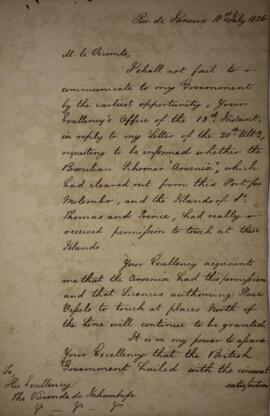 Rio de Janeiro 18th July 1826
M. le Vicomte,
I shall not fail to
communicate to my Government
by the earliest opportunity, Your
Excellency's Office of the 13th Instant,
in reply to my Letter of the 20th Ulto,
requesting to be informed whether the
Brazilian Schooner "Arsenia", which
had cleared out from this Port for
Molembo, and the Islands of St
Thomas and Prince, had really
received permission to touch at these
Islands
Your Excellency acquaints
me that the Arsenia had this permission
and that Licences authorising Slave
Vessels to touch at places North of
the Line will continue to be granted.
It is in my power to assure
Your Excellency that the British
Government hailed with the sincerest
satisfaction
To
His Excellency
The Visconde de Inhambupe